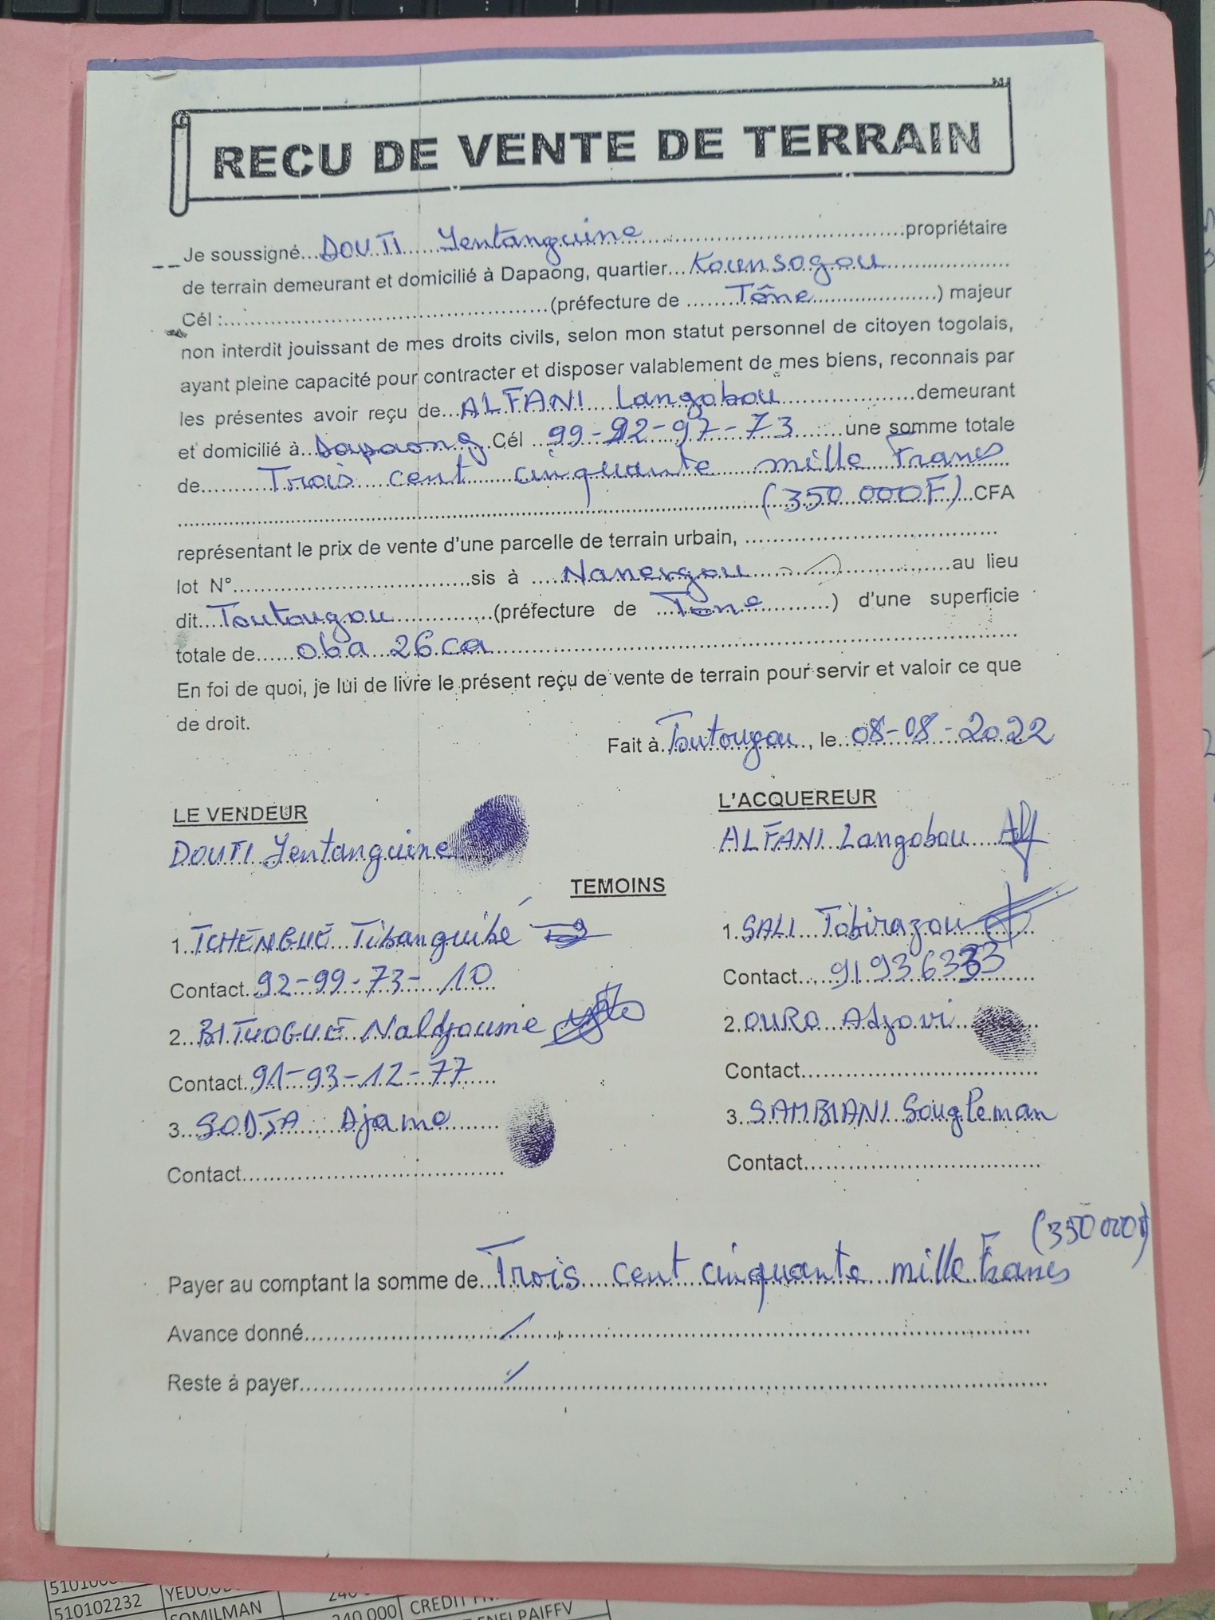 RECU DE VENTE DE TERRAIN
Je soussigné...DOUTI Yentanguine...propriétaire
de terrain demeurant et domicilié à Dapaong, quartier...Kounsogou...
Cél :...(préfecture de ...Tône...) majeur
non interdit jouissant de mes droits civils, selon mon statut personnel de citoyen togolais,
ayant pleine capacité pour contracter et disposer valablement de mes biens, reconnais par
les présentes avoir reçu de...ALFANI Langobou...demeurant
et domicilié à...Dapaong.Cél ..99-92-97-73...une somme totale
de...Trois cent cinquante mille Francs
...(350.000F)...CFA
représentant le prix de vente d'une parcelle de terrain urbain, ...
lot N°...sis à ...Nanergou...au lieu
dit...Toutougou...(préfecture de ...Tône...) d'une superficie
totale de...06a 26ca...
En foi de quoi, je lui de livre le présent reçu de vente de terrain pour servir et valoir ce que
de droit.
Fait à Toutougou, le 08-08-2022
LE VENDEUR
L'ACQUEREUR
DOUTI Yentanguine
ALFANI Langobou
TEMOINS
1..TCHENGUE Tibanguibé
1.SALI Tobirazou
Contact.92-99-73-10
Contact...91936333
2..BITUOGUE Naldjoume
2.OURO Adjovi
Contact.91-93-12-77
Contact...
3..SODJA Djame
3..SAMBIANI Sougleman
Contact...
Contact...
(350 000F)
Payer au comptant la somme de...Trois cent cinquante mille Francs
Avance donné.../...
Reste à payer.../...
510102232
SOMILMAN
240 000
CREDIT